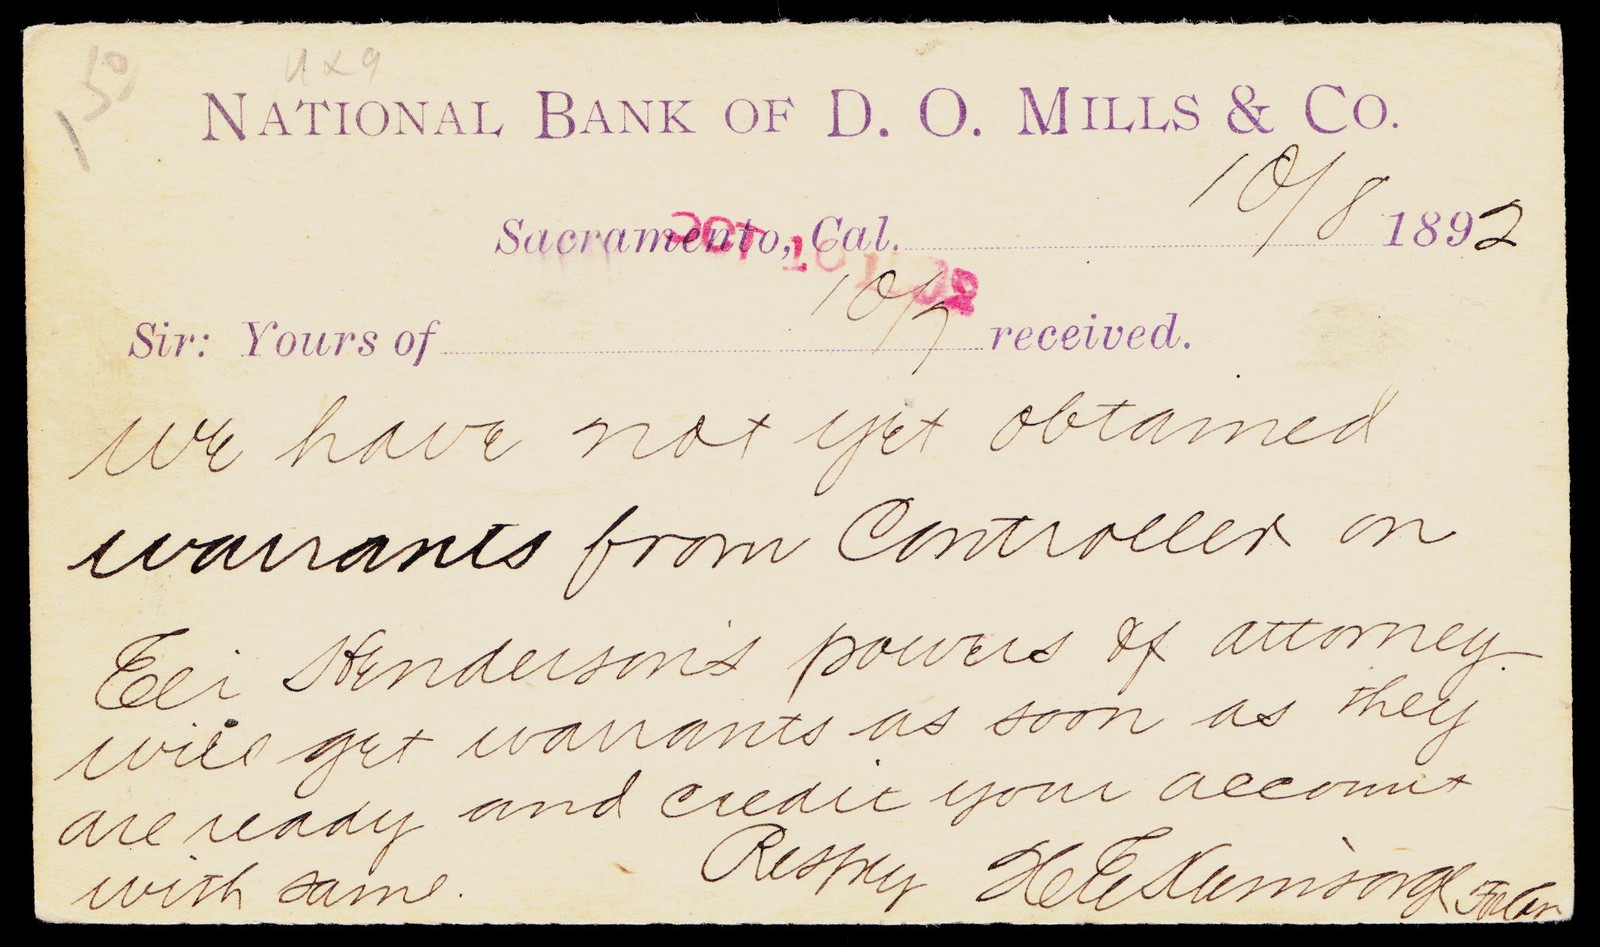 50
1
NATIONAL BANK OF D. O. MILLS & CO.
Sacramento, Cal. 10/8 1892
OCT 10 1892
Sir: Yours of 10/7 received.
We have not yet obtained
warrants from Controller on
Eli Henderson's powers of attorney
will get warrants as soon as they
are ready and credit your account
with same.
Respy